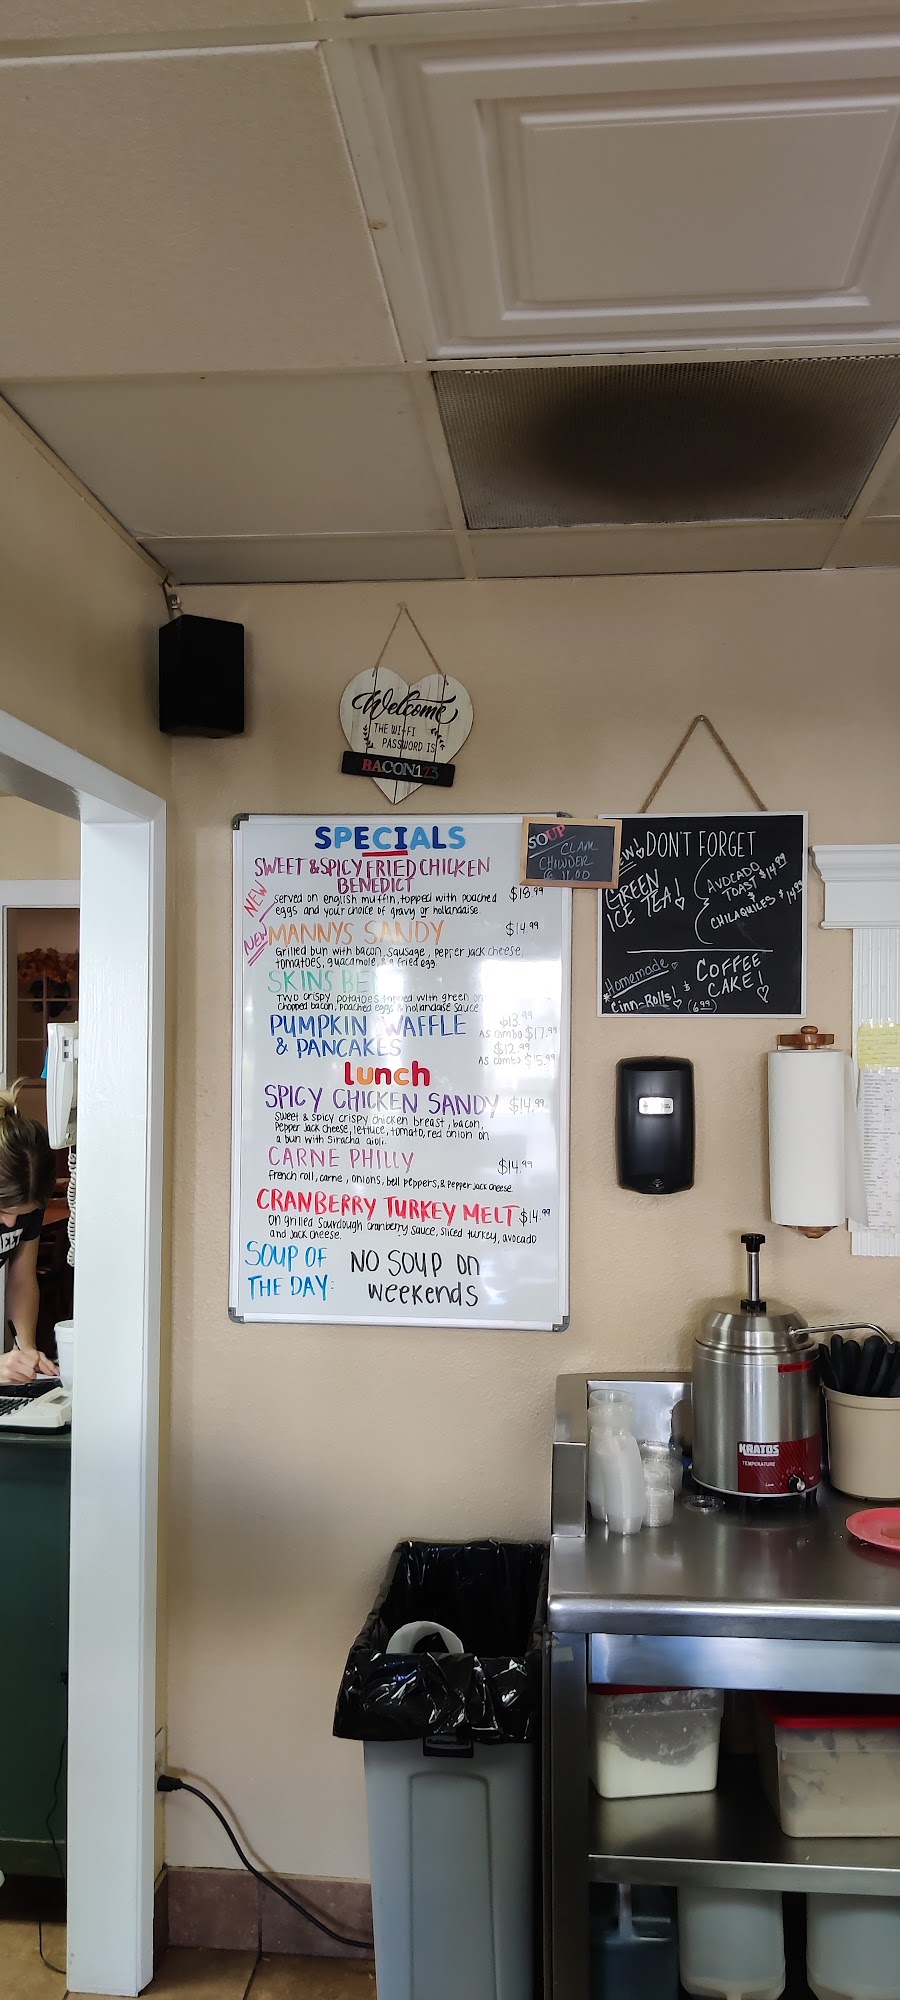 Welcome
THE WI-FI
PASSWORD IS
BACON123
SPECIALS
SWEET & SPICY FRIED CHICKEN
BENEDICT
NEW
served on english muffin, topped with poached $18.99
eggs and your choice of gravy or hollandaise
NEW MANNYS SANDY $14.99
Grilled bun with bacon, sausage, pepper jack cheese,
tomatoes, guacamole, & a fried egg
SKINS BE
TWO crispy potatoes topped with green on
chopped bacon, poached eggs & hollandaise sauce
PUMPKIN WAFFLE $13.99
AS combo $17.99
& PANCAKES $12.99
AS combo $15.99
Lunch
SPICY CHICKEN SANDY $14.99
Sweet & spicy crispy chicken breast, bacon,
Pepper jack cheese, lettuce, tomato, red onion on
a bun with Siracha aioli.
CARNE PHILLY $14.99
french roll, carne, onions, bell peppers, & Pepper jack cheese.
CRANBERRY TURKEY MELT $14.99
on grilled Sourdough cranberry sauce, sliced turkey, avocado
and Jack cheese.
SOUP OF NO SOUP on
THE DAY: weekends
SOUP
CLAM
CHOWDER
@ 11:00
DON'T FORGET
GREEN
ICE TEA!
AVOCADO
TOAST $14.99
&
CHILAQUILES $14.99
Homemade
Cinn-Rolls! &
COFFEE
CAKE!
(6.99)
KRATOS
TEMPERATURE
Low